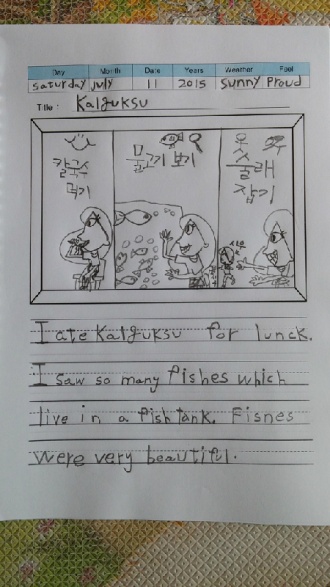 Day Month Date Years Weather Feel
Saturday July 11 2015 Sunny Proud
Title : Kalguksu
칼국수
먹기
물고기 보기
술래
잡기
I ate Kalguksu for lunck.
I saw so many fishes which
live in a fish tank. Fisnes
were very beautiful.